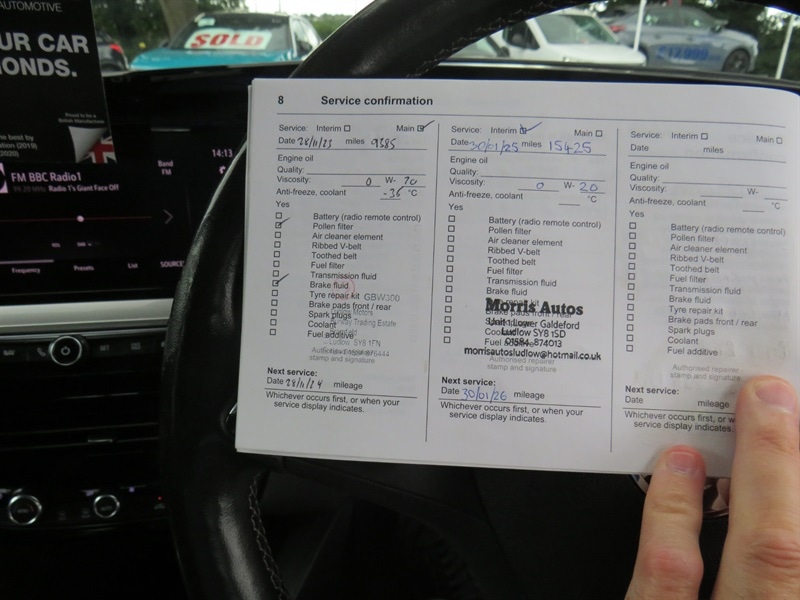 AUTOMOTIVE
UR CAR
ONDS.
Proud to be a
British Manufacturer
he best by
ation (2019)
2020)
SOLD
£12,999
14:13
FM BBC Radio1
99.20 MHz Radio 1's Giant Face Off
Band
FM
Frequency
Presets
List
SOURCE
8 Service confirmation
Service: Interim Main
Date 28/11/23 miles 9385
Engine oil
Quality:
Viscosity: 0 W- 20
Anti-freeze, coolant -36 °C
Yes
Battery (radio remote control)
Pollen filter
Air cleaner element
Ribbed V-belt
Toothed belt
Fuel filter
Transmission fluid
Brake fluid
Tyre repair kit GBW300
Brake pads front / rear
Spark plugs Motors
Coolant way Trading Estate
Fuel additive
Ludlow, SY8 1FN
Authorised repairer 876444
stamp and signature
Next service:
Date 28/11/24 mileage
Whichever occurs first, or when your
service display indicates.
Service: Interim Main
Date 30/01/25 miles 15425
Engine oil
Quality:
Viscosity: 0 W- 20
Anti-freeze, coolant °C
Yes
Battery (radio remote control)
Pollen filter
Air cleaner element
Ribbed V-belt
Toothed belt
Fuel filter
Transmission fluid
Brake fluid
Tyre repair kit
Morris Autos
Brake pads front / rear
Unit 1 Lower Galdeford
Spark plugs
Ludlow SY8 1SD
Coolant
01584 874013
Fuel additive
morrisautosludlow@hotmail.co.uk
Authorised repairer
stamp and signature
Next service:
Date 30/01/26 mileage
Whichever occurs first, or when your
service display indicates.
Service: Interim Main
Date miles
Engine oil
Quality:
Viscosity: W-
Anti-freeze, coolant °C
Yes
Battery (radio remote control)
Pollen filter
Air cleaner element
Ribbed V-belt
Toothed belt
Fuel filter
Transmission fluid
Brake fluid
Tyre repair kit
Brake pads front / rear
Spark plugs
Coolant
Fuel additive
Authorised repairer
stamp and signature
Next service:
Date mileage
Whichever occurs first, or w
service display indicates.